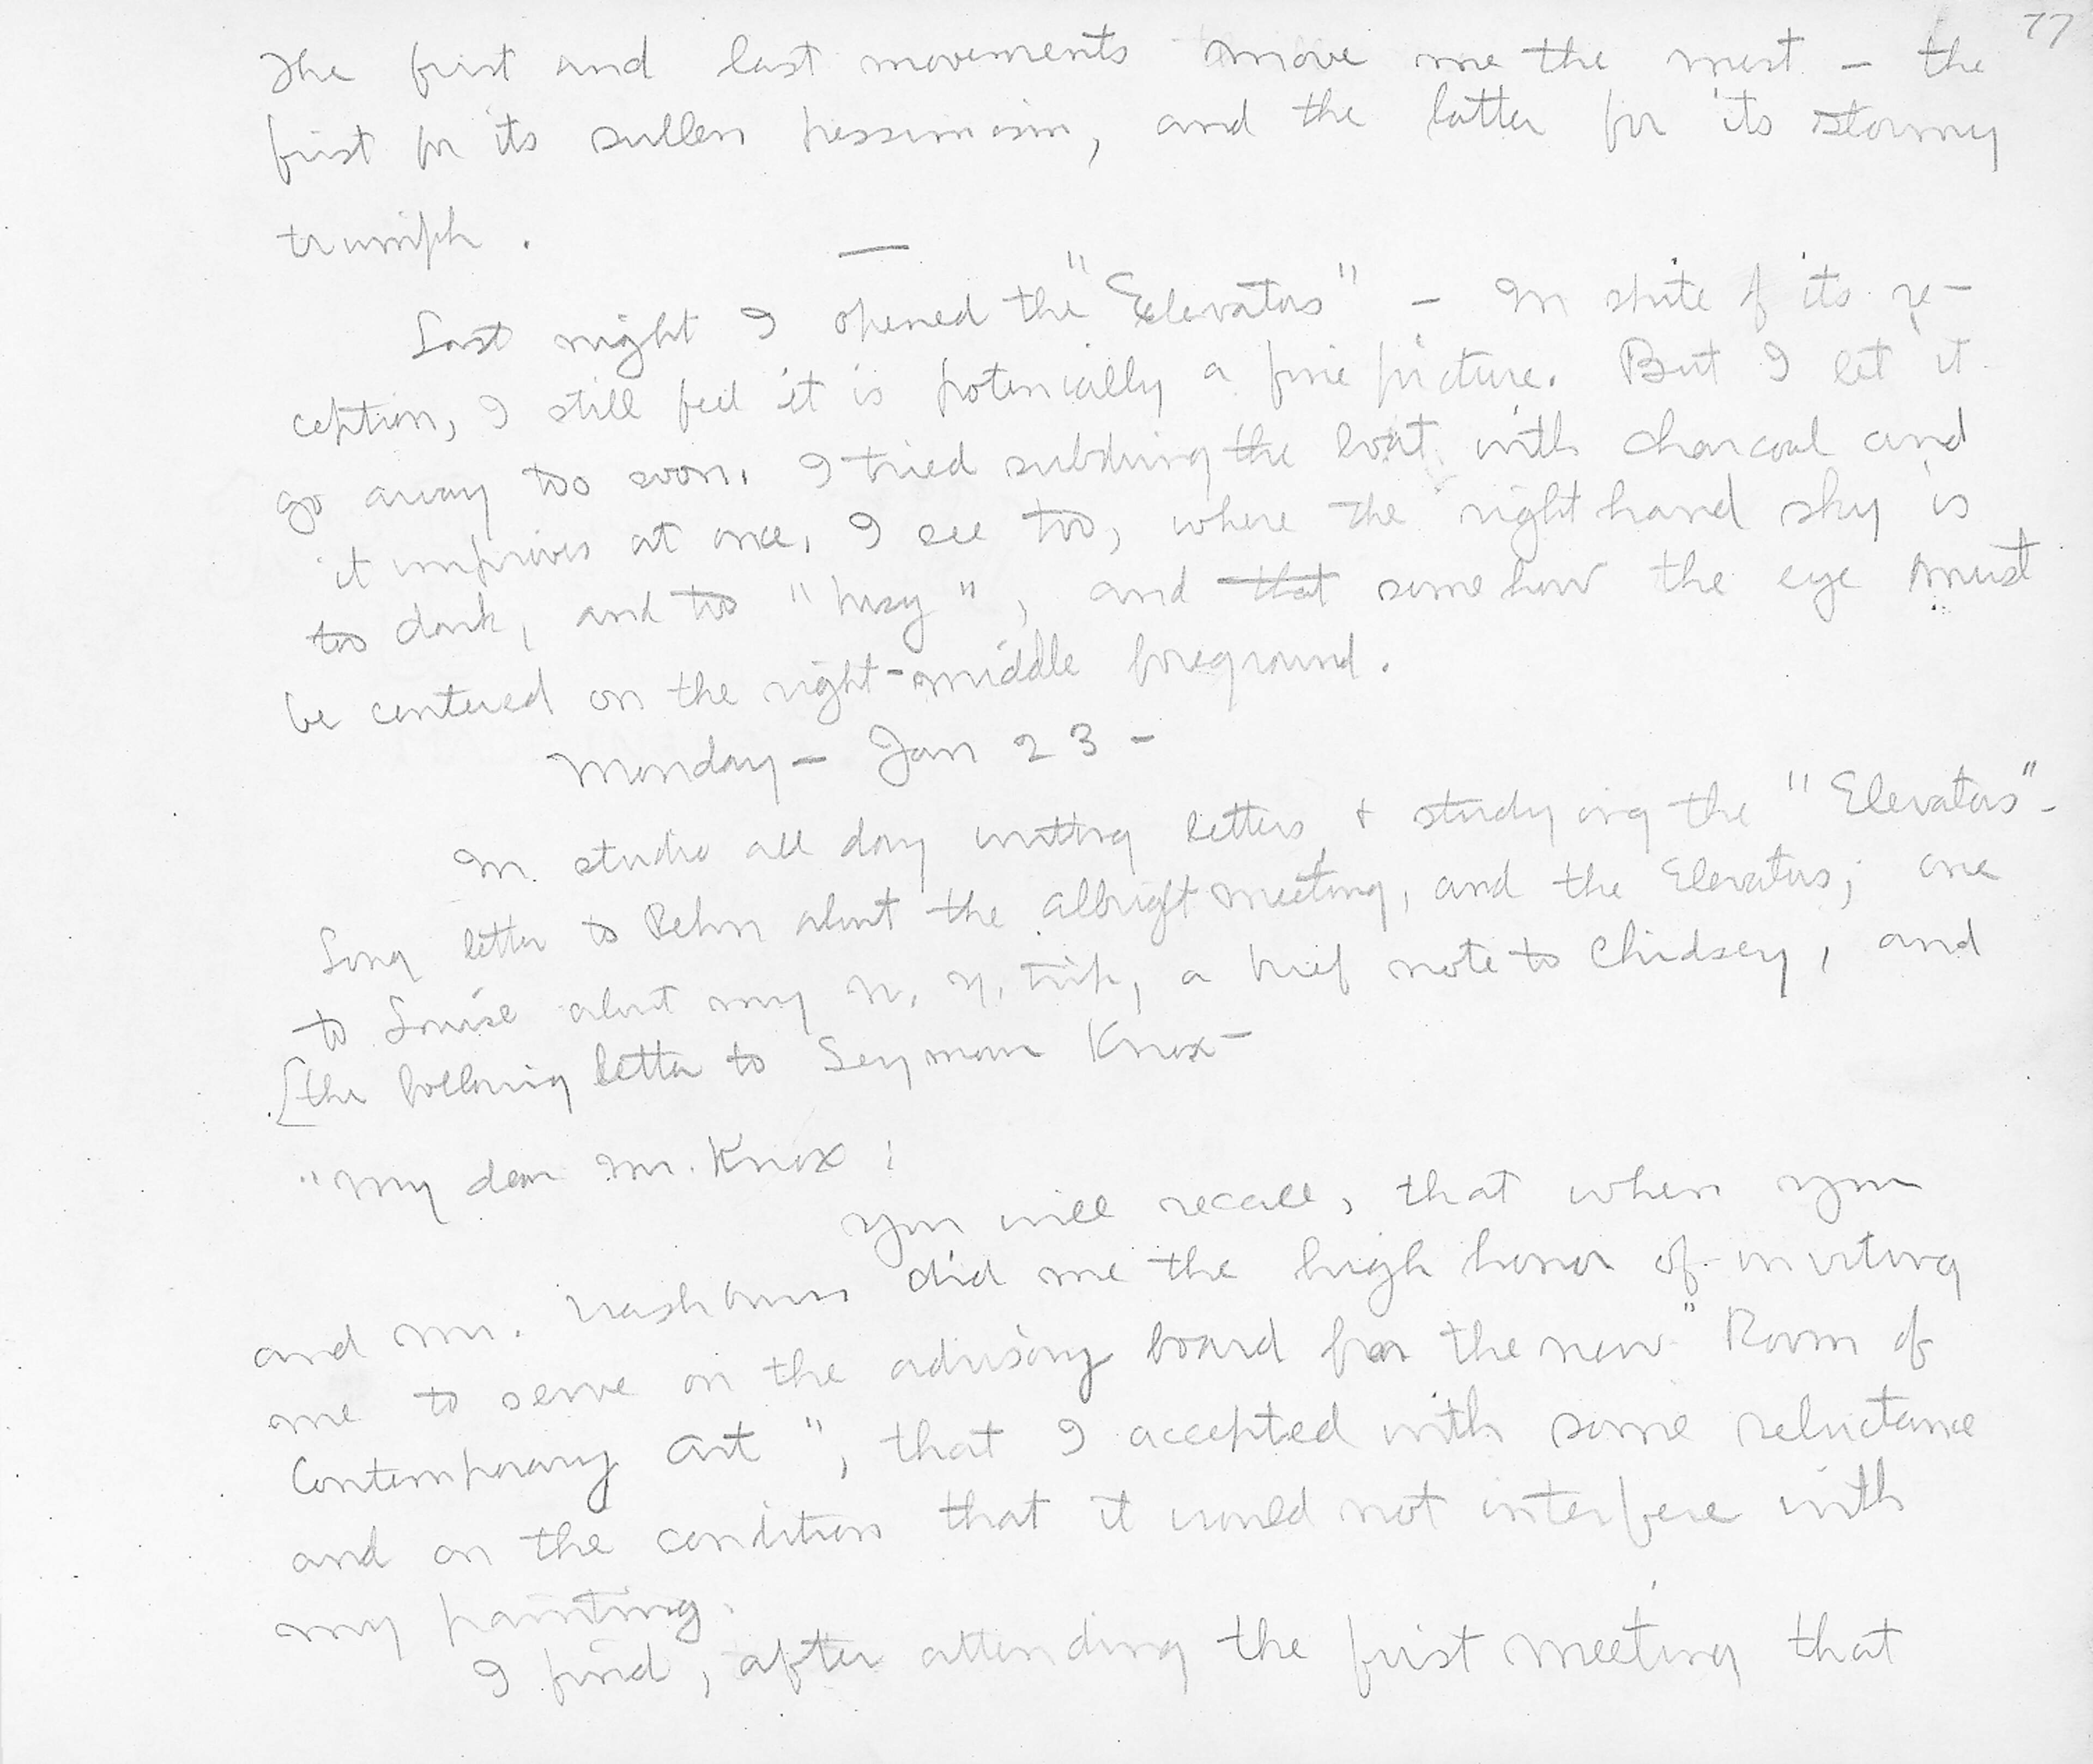 77
The first and last movements move me the most – the
first for its sullen pessimism, and the latter for its stormy
triumph.
—
Last night I opened the "Elevators" – In spite of its re-
ception, I still feel it is potenially a fine picture. But I let it
go away too soon. I tried subduing the boat with charcoal and
it improves at once. I see too, where the right hand sky is
too dark, and too "busy", and that somehow the eye must
be centered on the right-middle foreground.
Monday – Jan 23 –
In studio all day writing letters & studying the "Elevators" –
Long letter to Rehn about the Albright meeting, and the Elevators; one
to Louise about my N.Y. trip, a brief note to Chidsey, and
[the following letter to Seymour Knox –
"My dear Mr. Knox:
You will recall, that when you
and Mr. Washburn did me the high honor of inviting
me to serve on the advisory board for the new "Room of
Contemporary Art", that I accepted with some reluctance
and on the condition that it would not interfere with
my painting.
I find, after attending the first meeting that